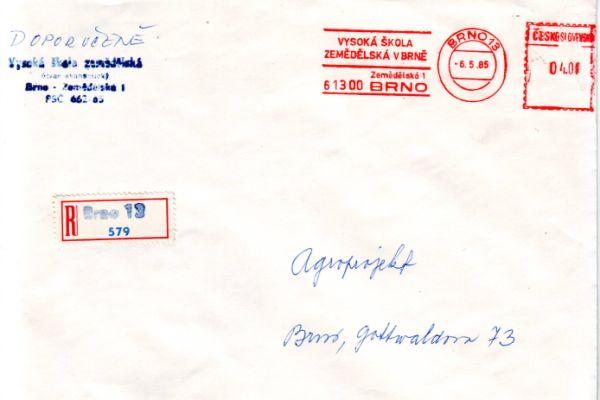 DOPORUČENĚ
Vysoká škola zemědělská
útvar ekonomický
Brno - Zemědělská 1
PSČ 662 65
VYSOKÁ ŠKOLA
ZEMĚDĚLSKÁ V BRNĚ
Zemědělská 1
613 00 BRNO
BRNO 13
-6.5.85
ČESKOSLOVENSKO
04.0
R Brno 13
579
Agroprojekt
Brno, Gottwaldova 73